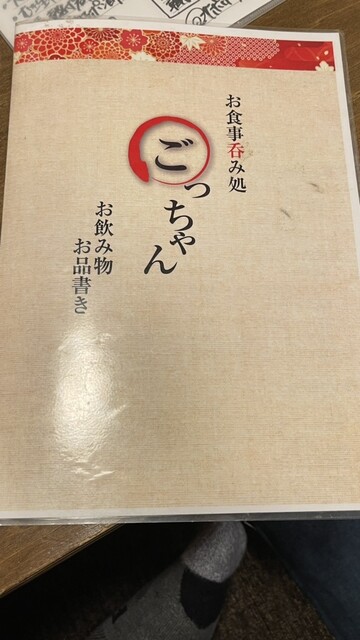 お食事呑み処
ごっちゃん
お飲み物
お品書き